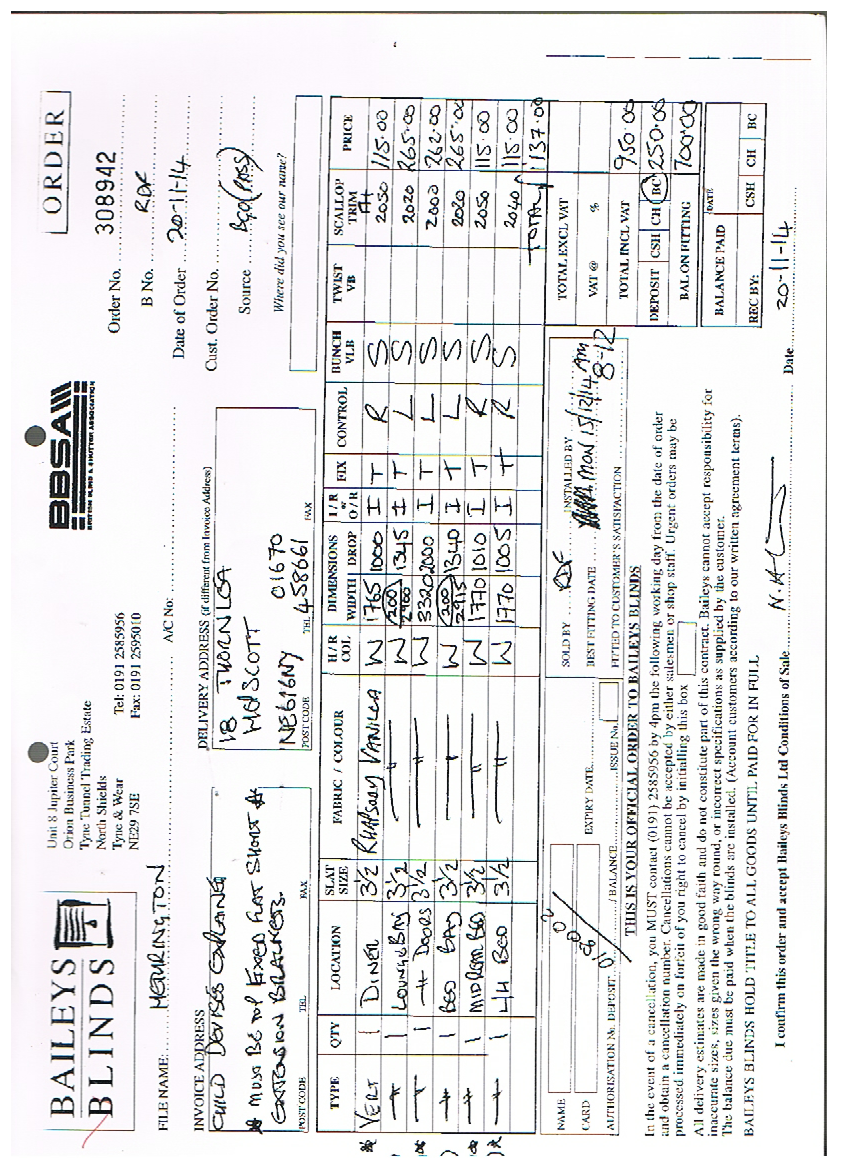 BAILEYS
BLINDS
Unit 8 Jupiter Court
Orion Business Park
Tyne Tunnel Trading Estate
North Shields
Tyne & Wear
NE29 7SE
Tel: 0191 2585956
Fax: 0191 2595010
BBSA
BRITISH BLIND & SHUTTER ASSOCIATION
ORDER
Order No. 308942
B No. RDF
Date of Order 20-11-14
Cust. Order No.
Source
Where did you see our name?
FILE NAME: A/C No:
INVOICE ADDRESS
CHILD DEVISES EXPLAINED
* MUST BE TOP FIXED FLAT SHORT *
EXTENSION BRACKETS.
POST CODE TEL FAX
DELIVERY ADDRESS (if different from Invoice Address)
18 THORNLEA
HEPSCOTT
NE61 6NY 01670
POST CODE TEL 458661 FAX
TYPE QTY LOCATION SLAT SIZE FABRIC / COLOUR H/R COL DIMENSIONS WIDTH DROP I/R or O/R FIX CONTROL BUNCH VLB TWIST VB SCALLOP TRIM PRICE
VERT 1 DINER 3½ RHAPSODY VANILLA W 1765 1000 I T R S 2050 115.00
1 LOUNGE BAY 3½ " W 200 2900 1345 I T L S 2020 265.00
1 DOORS 3½ " W 3320 2000 I T L S 2000 262.00
1 BED BAY 3½ " W 200 2915 1340 I T L S 2020 265.00
1 MIDRM BED 3½ " W 1770 1010 I T R S 2050 115.00
1 L/H BED 3½ " W 1770 1005 I T R S 2040 115.00
TOTAL 1137.00
NAME
CARD EXPIRY DATE
AUTHORISATION No. DEPOSIT / BALANCE ISSUE No.
SOLD BY RDF INSTALLED BY
BEST FITTING DATE MON 15/12/14 AM
8-12
FITTED TO CUSTOMER'S SATISFACTION
TOTAL EXCL VAT
VAT @ %
TOTAL INCL VAT 950.00
DEPOSIT CSH CH BC 250.00
BAL ON FITTING 700.00
BALANCE PAID DATE
REC BY: CSH CH BC
THIS IS YOUR OFFICIAL ORDER TO BAILEYS BLINDS
In the event of a cancellation, you MUST contact (0191) 2585956 by 4pm the following working day from the date of order
and obtain a cancellation number. Cancellations cannot be accepted by either salesmen or shop staff. Urgent orders may be
processed immediately on forfeit of you right to cancel by initialling this box
All delivery estimates are made in good faith and do not constitute part of this contract. Baileys cannot accept responsibility for
inaccurate sizes, sizes given the wrong way round, or incorrect specifications as supplied by the customer.
The balance due must be paid when the blinds are installed. (Account customers according to our written agreement terms).
BAILEYS BLINDS HOLD TITLE TO ALL GOODS UNTIL PAID FOR IN FULL
I confirm this order and accept Baileys Blinds Ltd Conditions of Sale Date 20-11-14